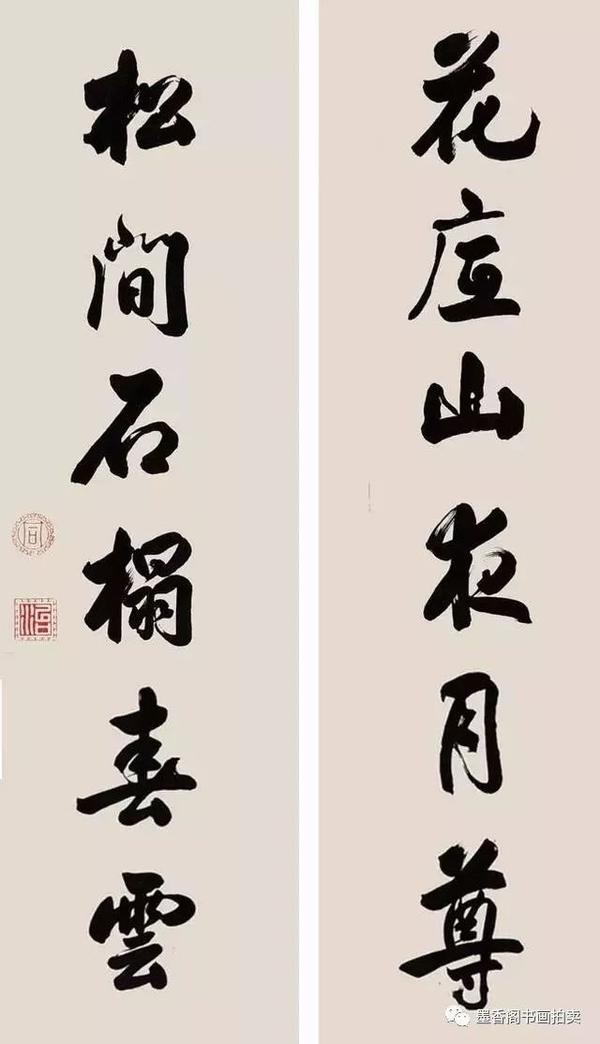 花山夜月尊
松間石榻春雲
同
治
墨香阁书画拍卖